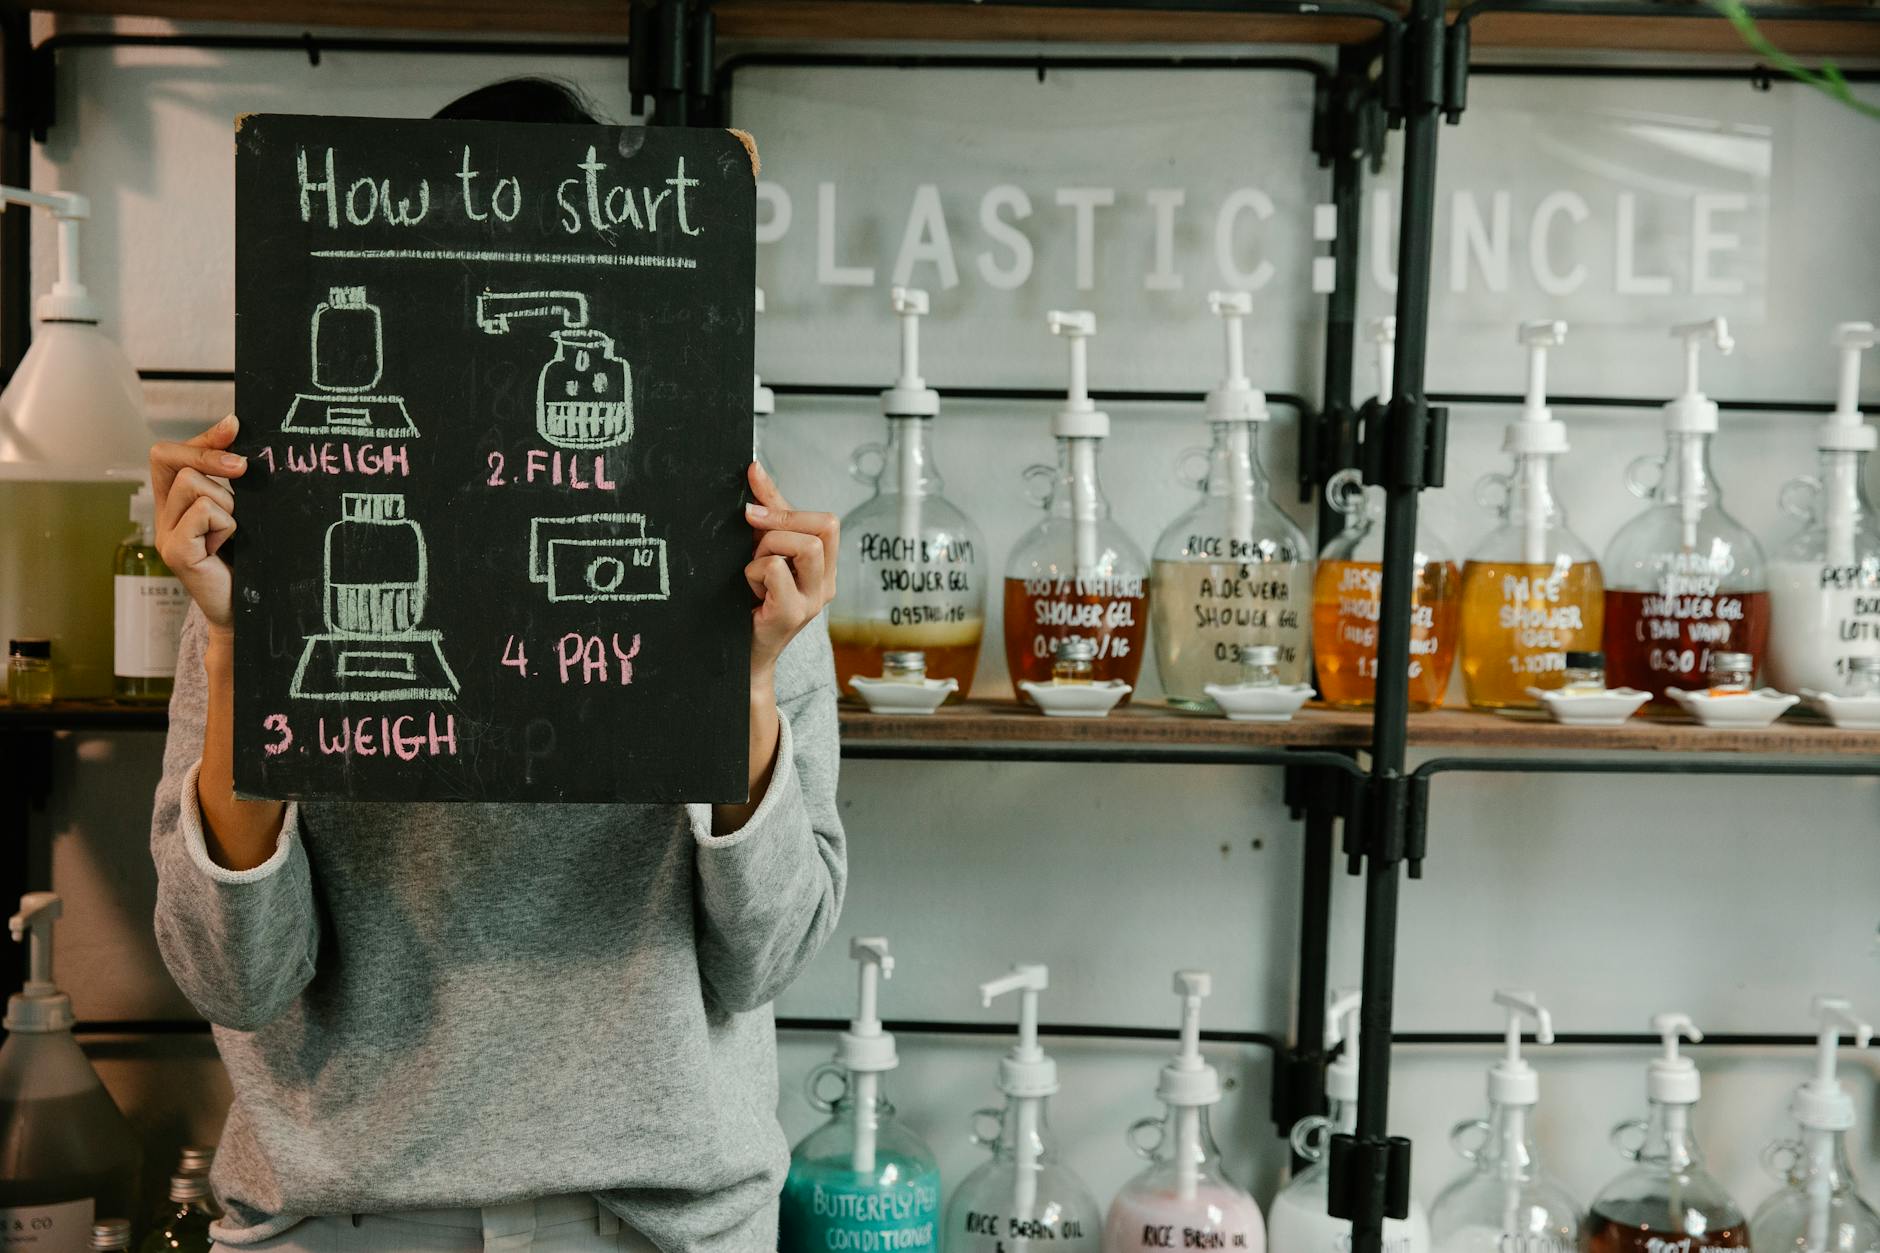 How to start
1. WEIGH
2. FILL
3. WEIGH
4. PAY
PLASTIC:UNCLE
PEACH
SHOWER GEL
0.95THB/1G
100% NATURAL
SHOWER GEL
RICE BRAN OIL
&
ALOE VERA
SHOWER GEL
RICE
SHOWER
GEL
HONEY
SHOWER GEL
0.30 /
LESS &
& CO
BUTTERFLY PEA
CONDITIONER
RICE BRAN OIL
RICE BRAN OIL
100%